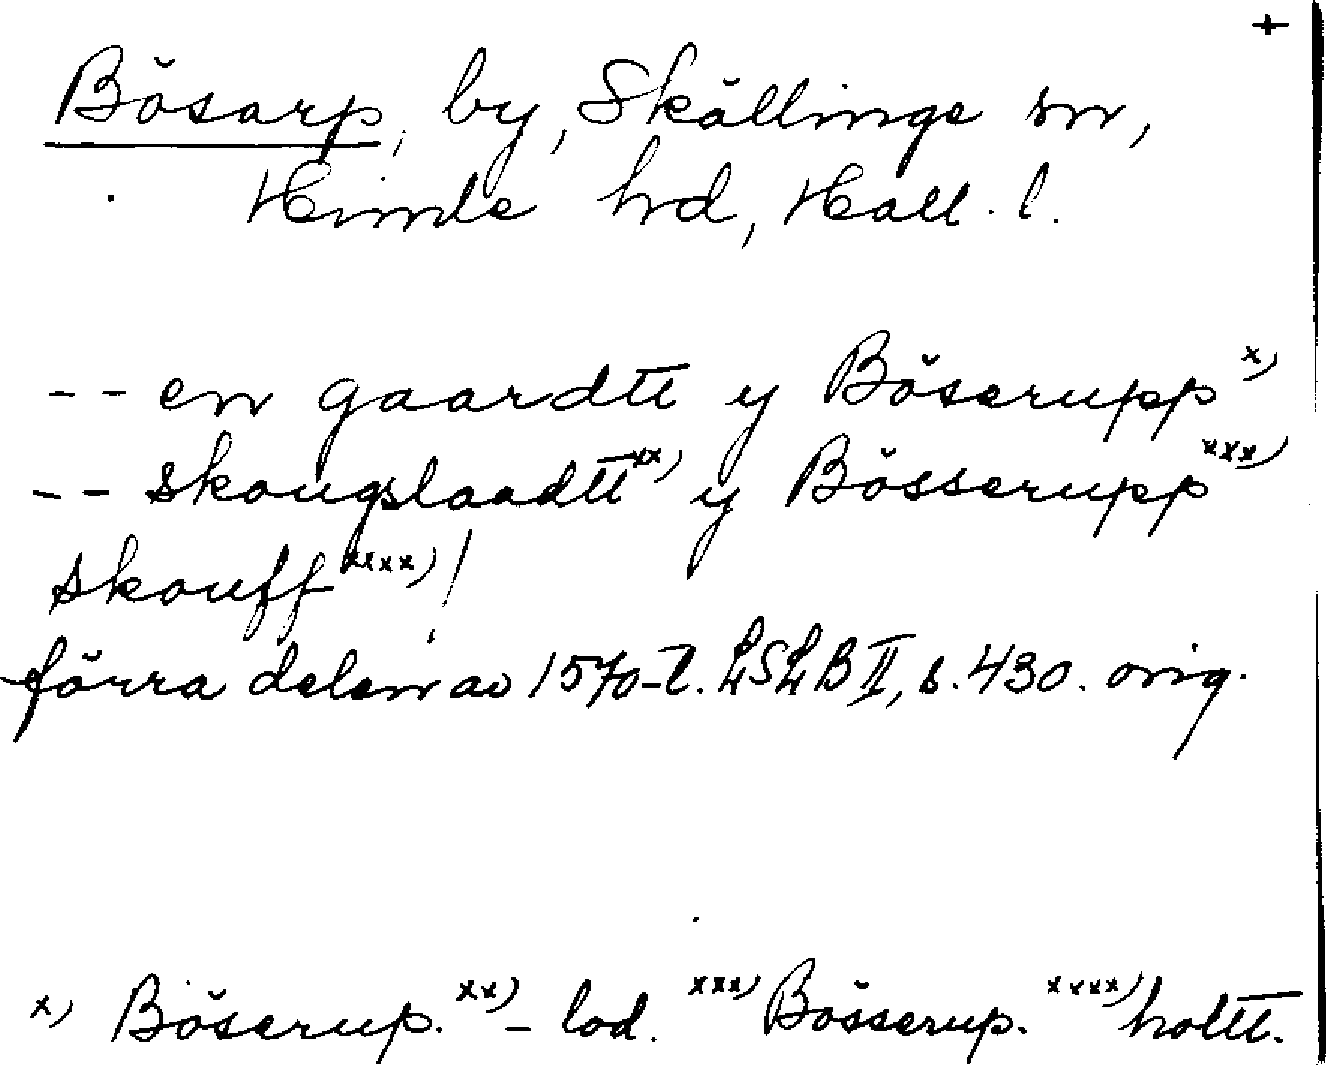 +
Bösarp, by, Skällinge sn,
Himle hrd, Hall. l.
-- en gaardtt y Böserupp x)
-- skougslaadtt xx) y Bösserupp xxx)
skouff xxxx) !
förra delen av 1570-t. LSLB II, s. 430. orig.
x) Böserup. xx) - lod. xxx) Bösserup. xxxx) holtt.